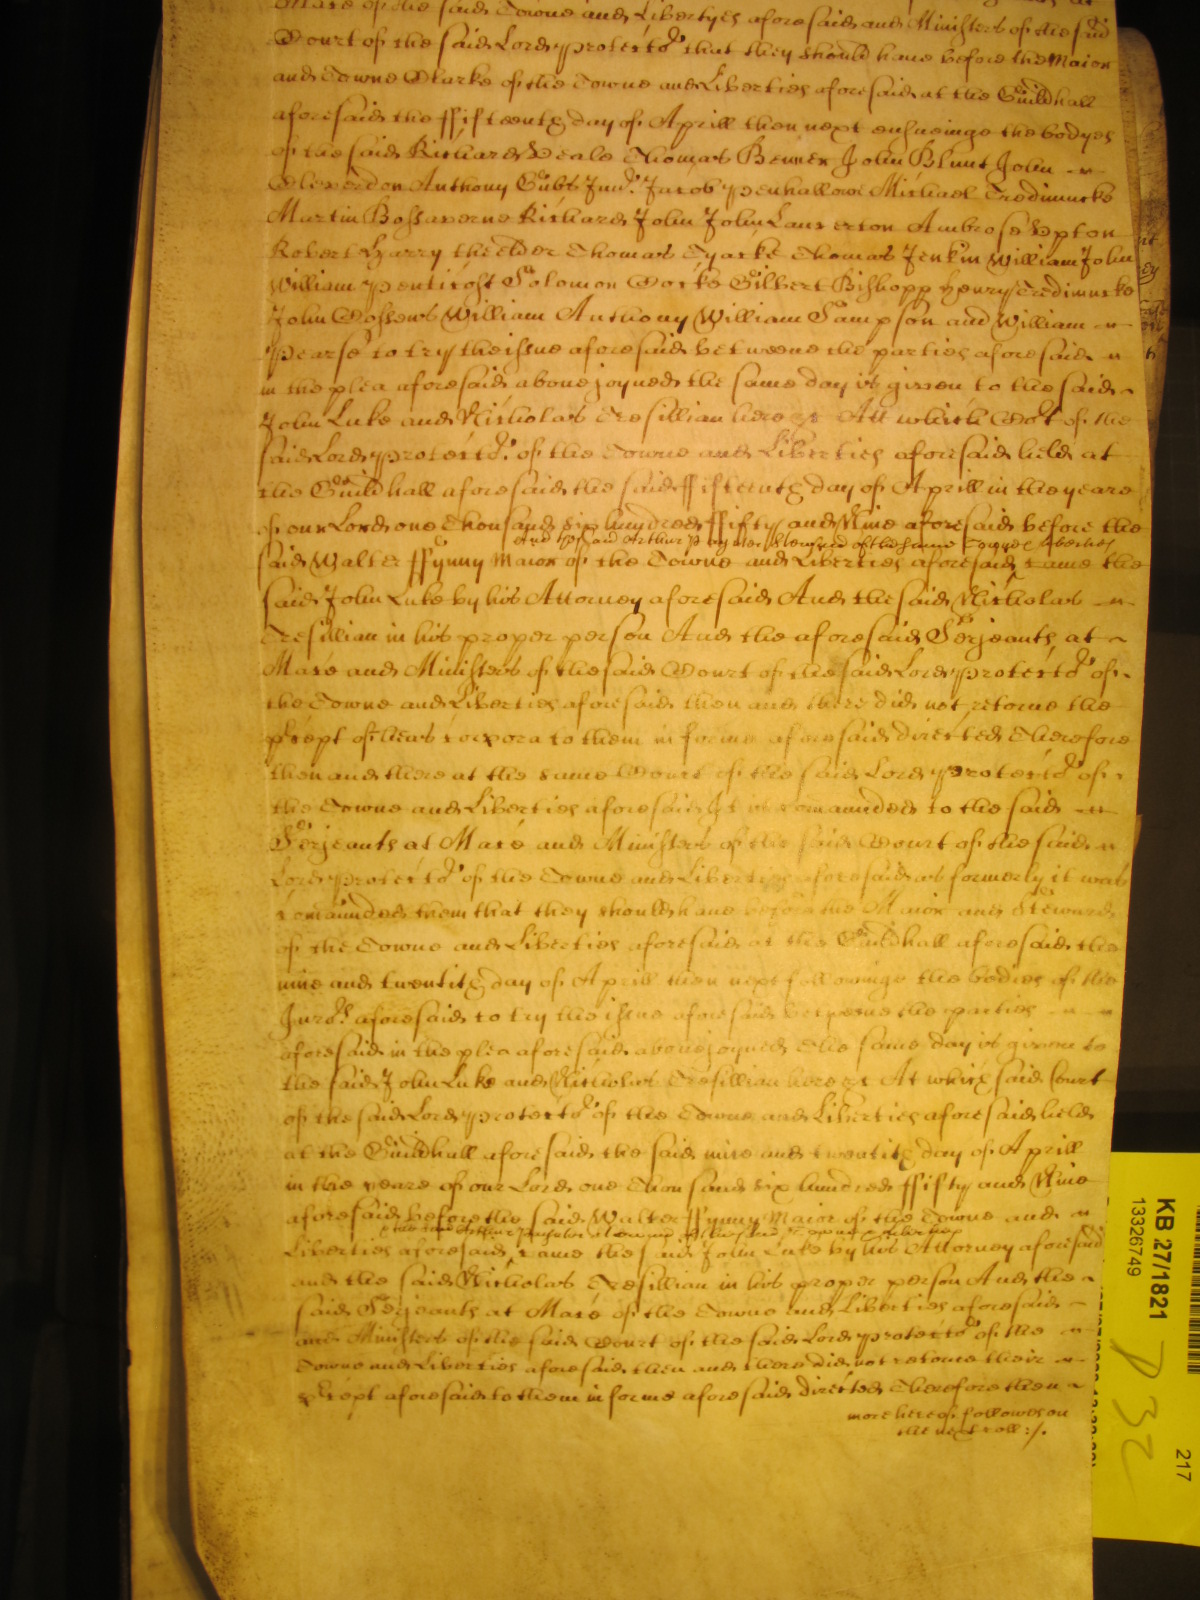 Mace of the said Towne and Libertyes aforesaid and Ministers of the said
Court of the said Lord Protector that they should have before the Maior
and Towne Clarke of the Towne and Liberties aforesaid at the Guildhall
aforesaid the ffifteenth day of Aprill then next ensueinge the bodyes
of the said Richard Veale Thomas Benner John Blunt John
Cleverdon Anthony Gubs Jun. Jacob Penhallow Michael Tredinnicke
Martin Bossaverne Richard John John Lanxerton Ambrose Upton
Robert Harry the elder Thomas Tyacke Thomas Jenkin William John
William Penticost Solomon Cocke Gilbert Bishopp Henry Tredinnicke
John Cossens William Anthony William Sampson and William
Pearse to try the issue aforesaid betweene the parties aforesaid
in the plea aforesaid above joyned the same day is given to the said
John Luke and Nicholas Tresillian here &c Att which Cort of the
said Lord Protector of the Towne and Liberties aforesaid held at
the Guildhall aforesaid the said ffifteenth day of Aprill in the yeare
of our Lord one Thousand six hundred ffifty and Nine aforesaid before the
and Arthur Paynter Steward of the same Towne & Liberties
said Walter ffynny Maior of the Towne and Liberties aforesaid came the
said John Luke by his Attorney aforesaid And the said Nicholas
Tresillian in his proper person And the aforesaid Serjeants at
Mace and Ministers of the said Court of the said Lord Protector of
the Towne and Liberties aforesaid then and there did not retorne the
precept of habeas corpora to them in forme aforesaid directed Therefore
then and there at the same Court of the said Lord Protector of
the Towne and Liberties aforesaid It is comaunded to the said
Serjeants at Mace and Ministers of the said Court of the said
Lord Protector of the Towne and Libertyes aforesaid as formerly it was
comaunded them that they should have before the Maior and Steward
of the Towne and Liberties aforesaid at the Guildhall aforesaid the
nine and twentith day of Aprill then next followinge the bodies of the
Jurors aforesaid to try the issue aforesaid betweene the parties
aforesaid in the plea aforesaid above joyned The same day is given to
the said John Luke and Nicholas Tresillian here &c At which said Court
of the said Lord Protector of the Towne and Liberties aforesaid held
at the Guildhall aforesaid the said nine and twentith day of Aprill
in the yeare of our Lord one Thousand six hundred ffifty and Nine
aforesaid before the said Walter ffynny Maior of the Towne and
Arthur Paynter Steward of the said Towne & Libertyes
Liberties aforesaid came the said John Luke by his Attorney aforesaid
and the said Nicholas Tresillian in his proper person And the
said Serjeants at Mace of the Towne and Liberties aforesaid
and Ministers of the said Court of the said Lord Protector of the
Towne and Liberties aforesaid then and there did not retorne their
precept aforesaid to them in forme aforesaid directed Therefore then
more hereof followes on
the next roll :/.
KB 27/1821
13326749
217
P 32